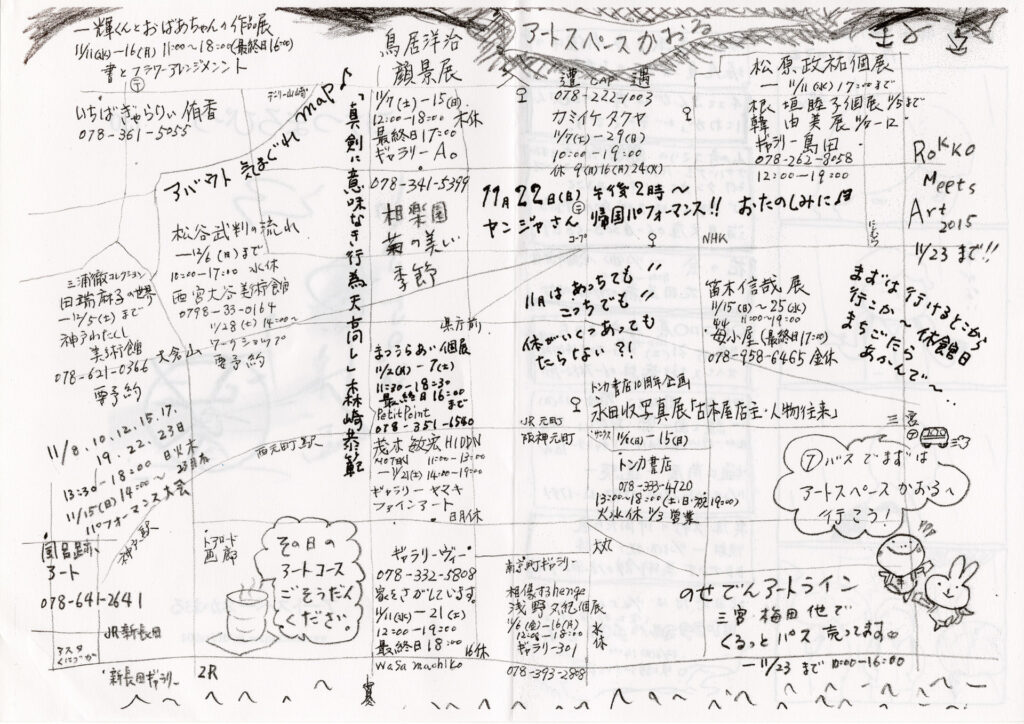 一輝くんとおばあちゃんの作品展
11/11(水)-16(月) 11:00~18:00(最終日16:00)
書とフラワーアレンジメント
いちばぎゃらりぃ侑香
078-361-5055
アバウト気まぐれmap♪
松谷武判の流れ
-12/6(日)まで
10:00-17:00 水休
西宮大谷美術館
0798-33-0164
11/28(土)14:00~
ワークショップ
要予約
三浦徹コレクション
田端麻子の世界
-12/5(土)まで
神戸わたくし
美術館
078-621-0366
要予約
大倉山
11/8.10.12.15.17.
19.22.23日
13:30-18:00
11/15(日)14:00~
パフォーマンス大会
日火木
西元町駅
神戸駅
アート
078-641-2641
JR新長田
アスタ
新長田ギャラリー
トアロード
画廊
その日の
アートコース
ごそうだん
ください。
2R
「真剣に意味なき行為天高し」森崎恭範
鳥居洋治
顔景展
11/7(土)-15(日)
12:00-18:00 木休
最終日17:00
ギャラリーA。
078-341-5399
相楽園
菊の美しい
季節
県庁前
まつうらあい個展
11/2(月)-7(土)
11:30-18:30
最終日16:00
まで
Petit Point
078-351-6540
茂木敏宏HIDDN
NOTEN 11:00-13:00
-11/21(土)14:00-19:00
ギャラリーヤマキ
ファインアート
日月休
ギャラリーヴィー
078-332-5808
11/11(水)-21(土)
12:00-19:00
最終日18:00
16休
wasa machiko
アートスペースかおる
遭CAP遇
078-222-1003
カミイケタクヤ
11/7(土)-29(日)
10:00-19:00
休 9(月)16(月)24(火)
11月22日(日)午後2時~
ヤンジャさん 帰国パフォーマンス!! おたのしみに
コープ
NHK
にしむら
11月はあっちでも!!
こっちでも!!
休がいくつあっても
たらない?!
トンカ書店10周年企画
永田收写真展「古本屋店主・人物往来」
11/6(金)-15(日)
JR元町
阪神元町
トンカ書店
078-333-4720
13:00~18:00(土・日・祝19:00)
火水休 11/3営業
大丸
南京町ギャラリー
相傷するhenge
浅野夕紀個展
11/6(金)-16(月)
12:00-18:00
水
休
ギャラリー301
078-393-2808
松原政祐個展
-11/11(水)17:00まで
根垣睦子個展 11/5まで
韓由美展 11/7-12
ギャラリー島田
078-262-8058
12:00-19:00
Rokko
Meets
Art
2015
11/23まで!!
笛木信哉展
11/15(日)~25(水)
11:00~19:00
(最終日17:00)
078-958-6465 金休
まずは行けるとこから
行こか~ 休館日
まちごたら
あかんで~
三宮
⑦バスでまずは
アートスペースかおるへ
行こう!
のせでんアートライン
三宮・梅田他で
ぐるっとパス売ってます
-11/23まで 10:00-16:00